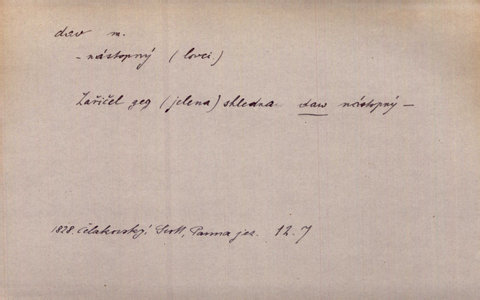 dav m.
- nástopný (lovci)
Zařičel geg (jelena) shledna daw nástopný —
1828. Čelakovský, Scott, Panna jez. 12.7